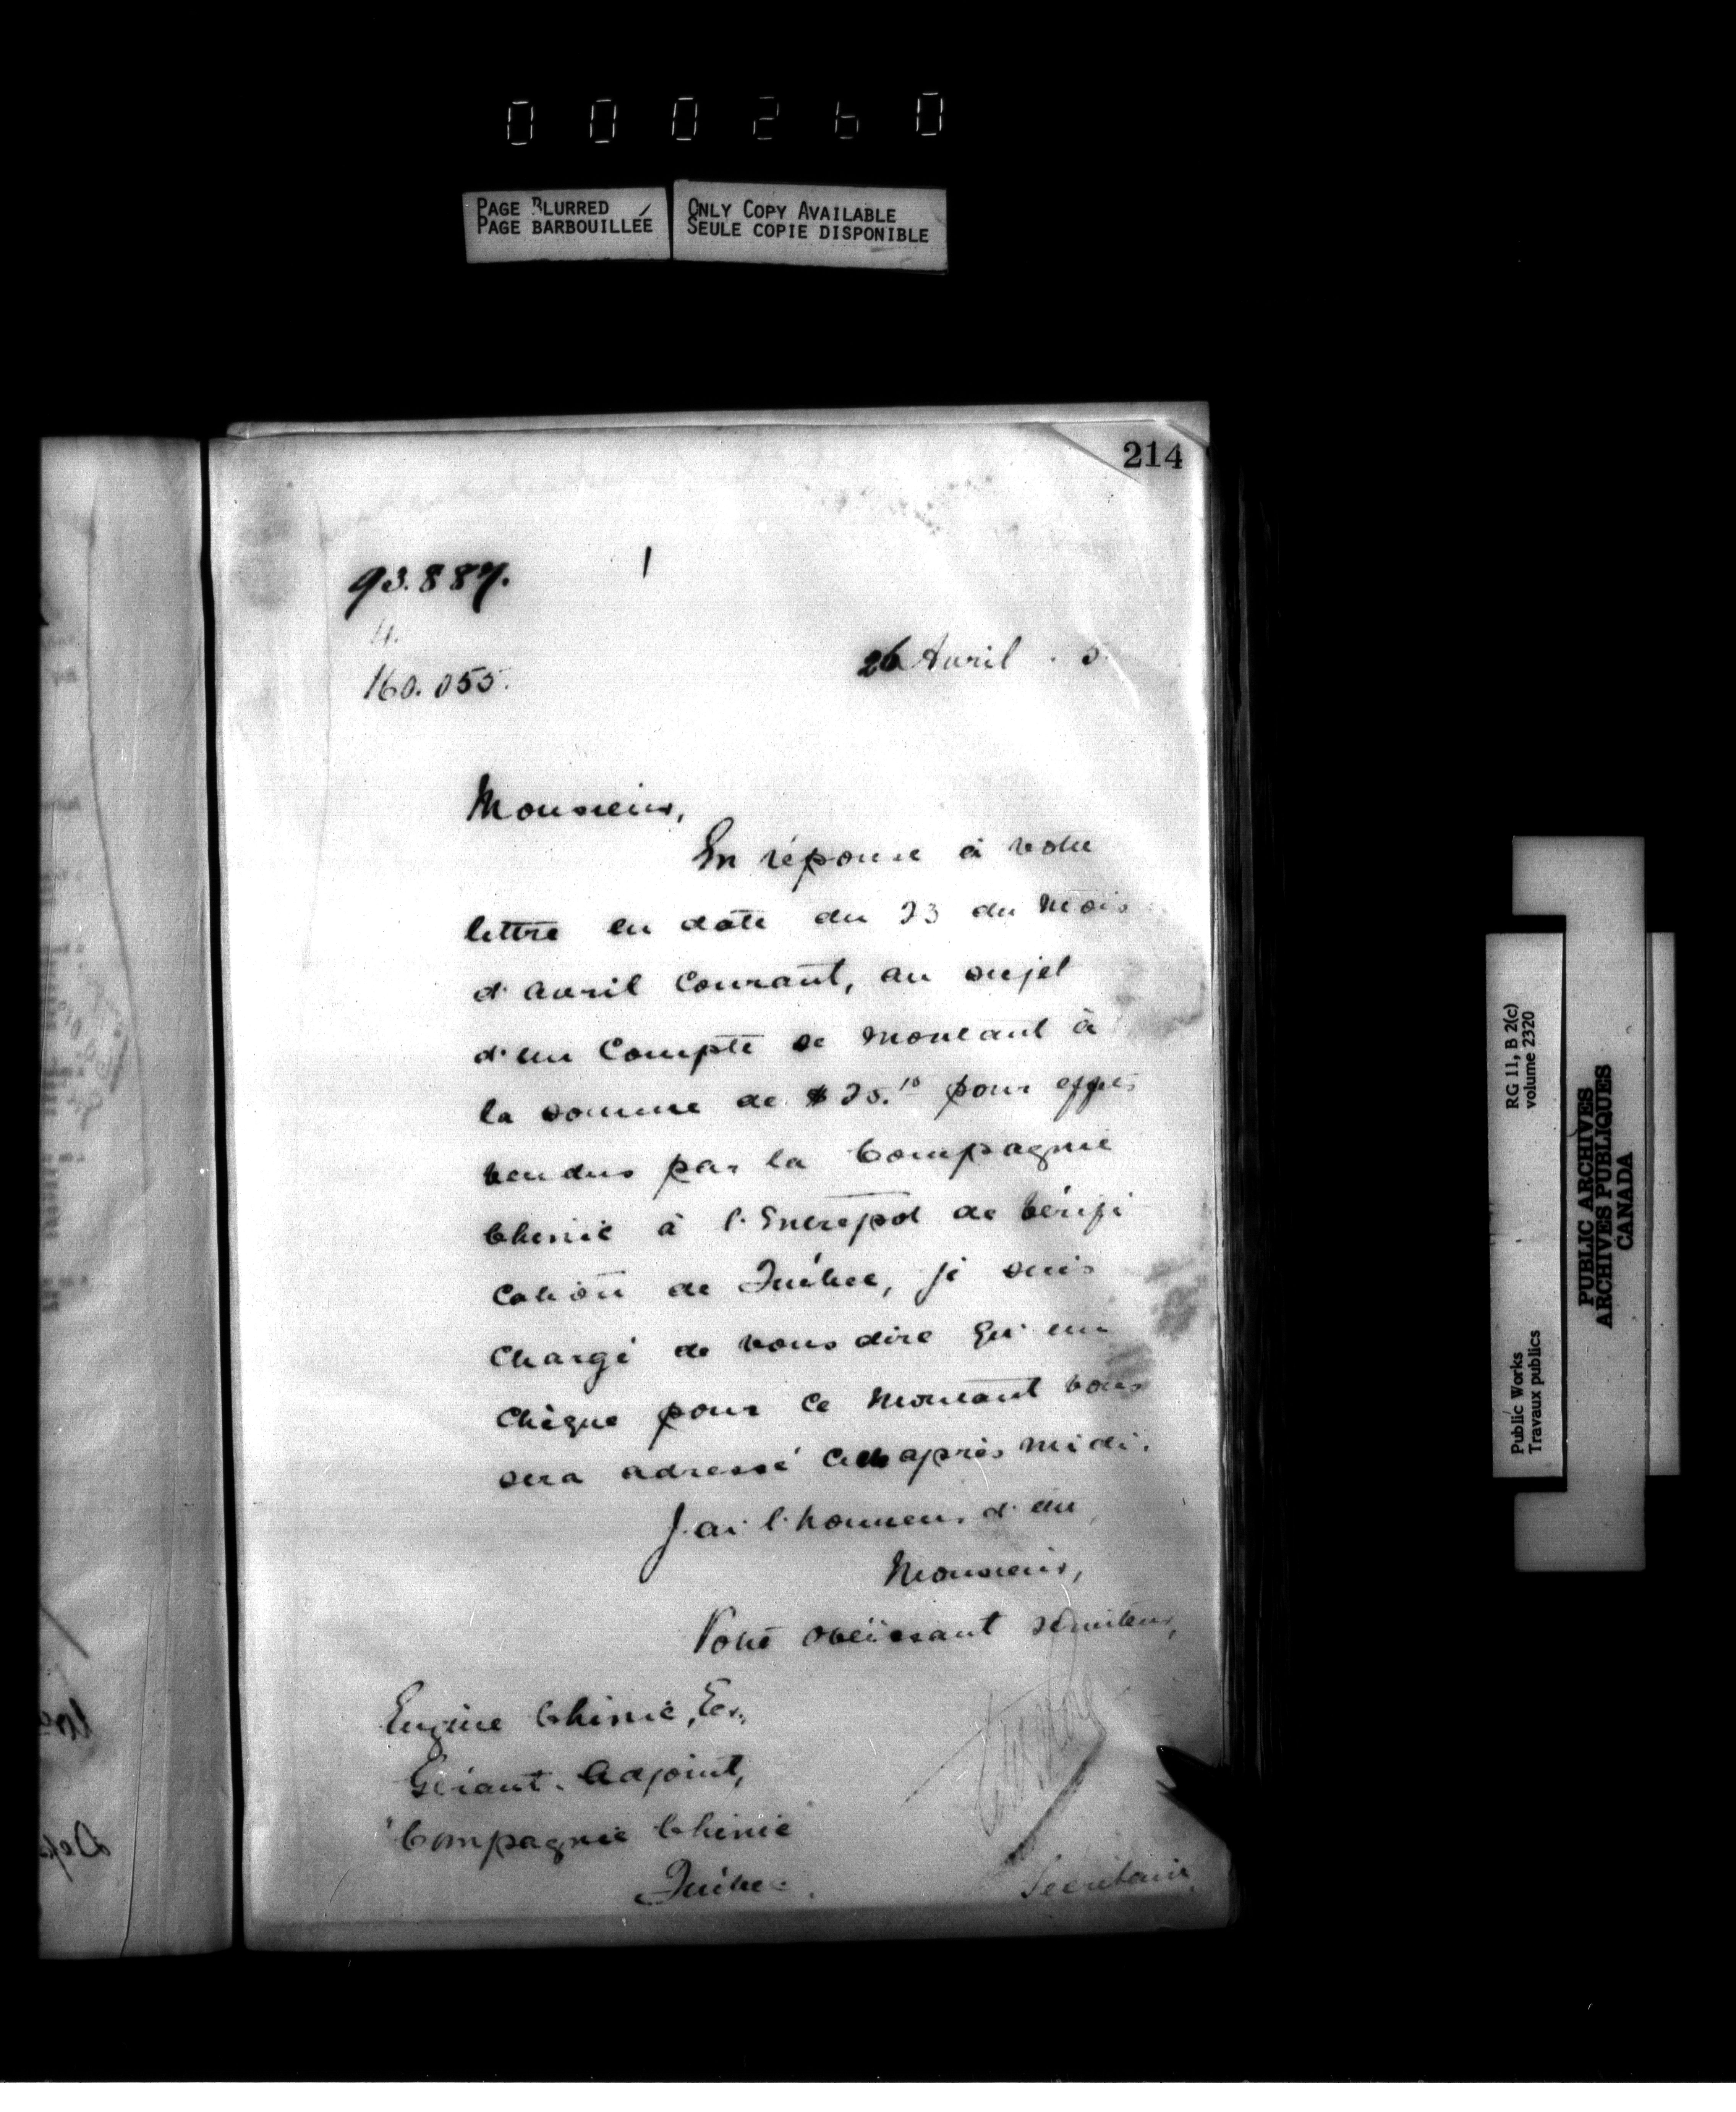 000260
PAGE BLURRED
PAGE BARBOUILLÉE
ONLY COPY AVAILABLE
SEULE COPIE DISPONIBLE
214
93.887.
160.055.
26 Avril . 5.
Monsieur,
En réponse à votre
lettre en date du 23 du mois
d'avril courant, au sujet
d'un Compte se montant à
la somme de $25.10 pour effets
vendus par la Compagnie
Chinic à l'Entrepôt de Vérifi
cation de Québec, je suis
chargé de vous dire qu'un
chèque pour ce montant vous
sera adressé cet après midi.
J'ai l'honneur d'être
Monsieur,
Votre obéissant serviteur,
Eugène Chinic, Ecr.,
Gérant-Adjoint,
"Compagnie Chinic"
Québec.
Secrétaire.
RG 11, B 2(c)
volume 2320
Public Works
Travaux publics
PUBLIC ARCHIVES
ARCHIVES PUBLIQUES
CANADA